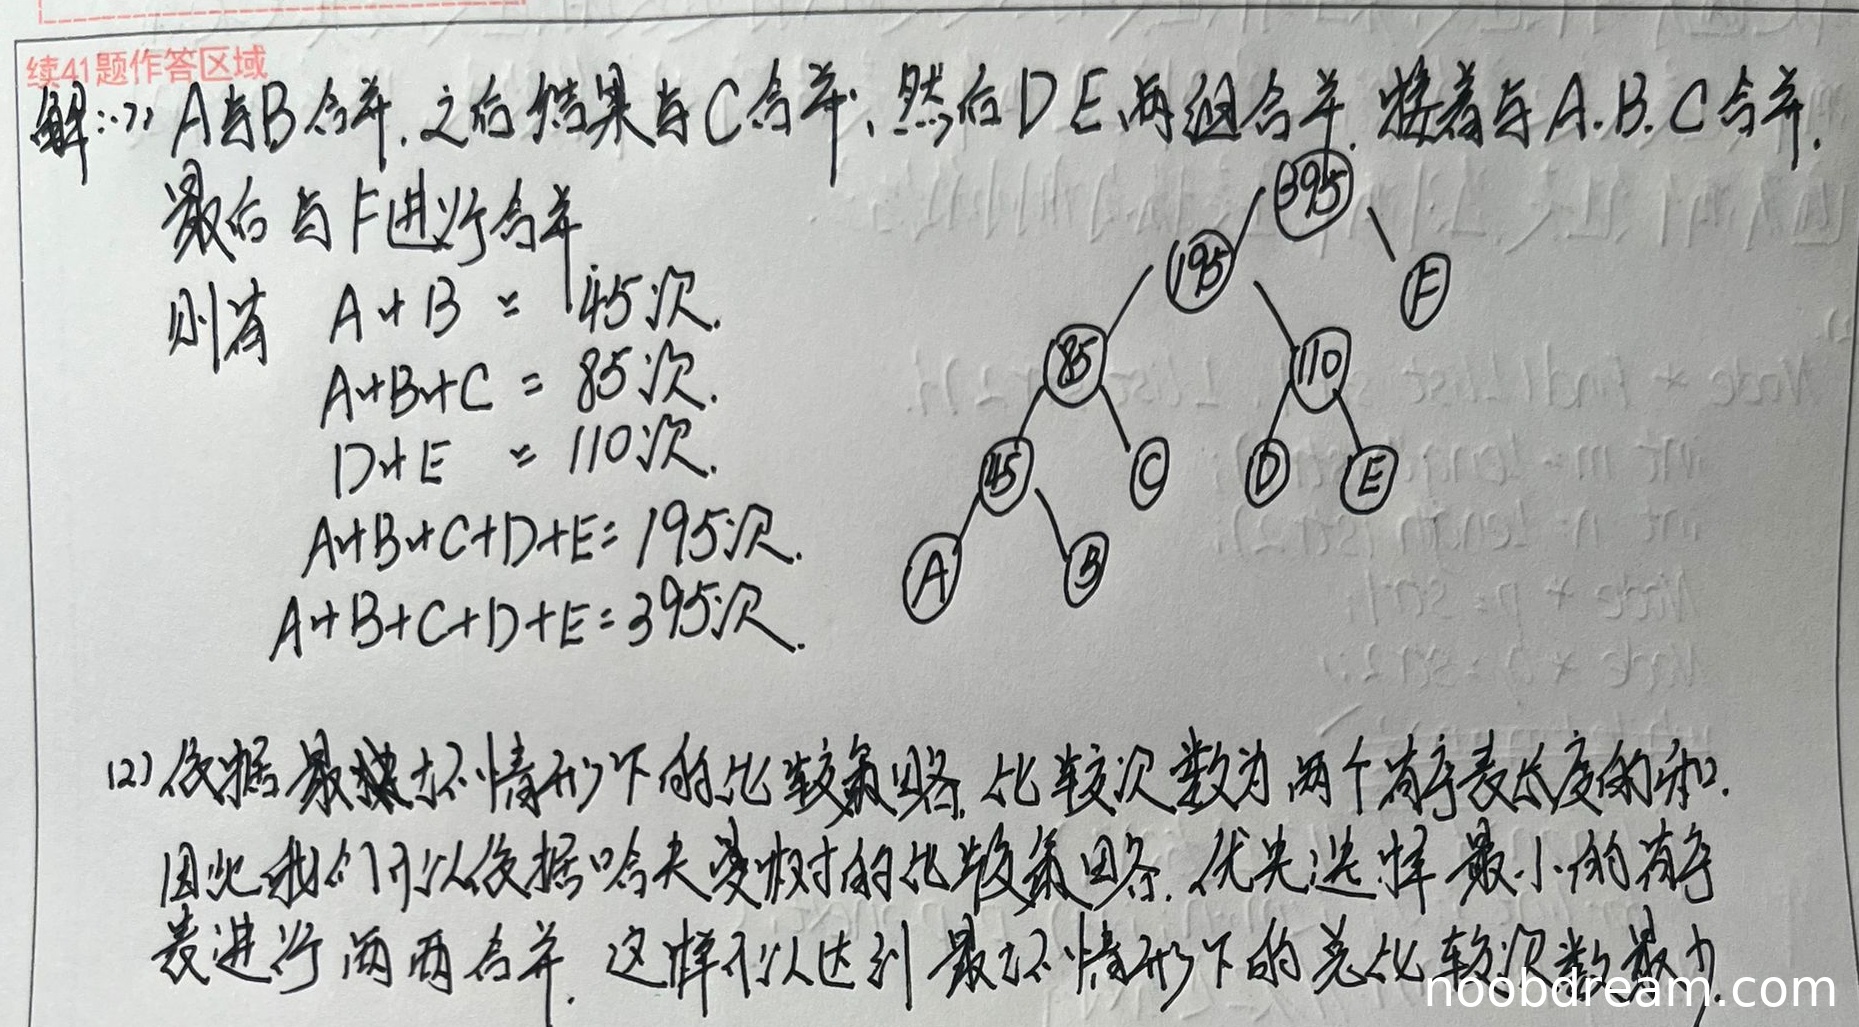 续41题作答区域
解:(1) A与B合并.之后结果与C合并,然后D E两组合并.接着与A.B.C合并.
最后与F进行合并
则有 A+B = 45次.
A+B+C = 85次.
D+E = 110次.
A+B+C+D+E=195次.
A+B+C+D+E=395次.
395
195
F
85
110
45
C
D
E
A
B
(2)依据最坏情形下的比较策略.比较次数为两个有序表长度的和.
因此我们可以依据哈夫曼树的比较策略.优先选择最小的有序
表进行两两合并.这样可以达到最坏情形下的总比较次数最少
noobdream.com